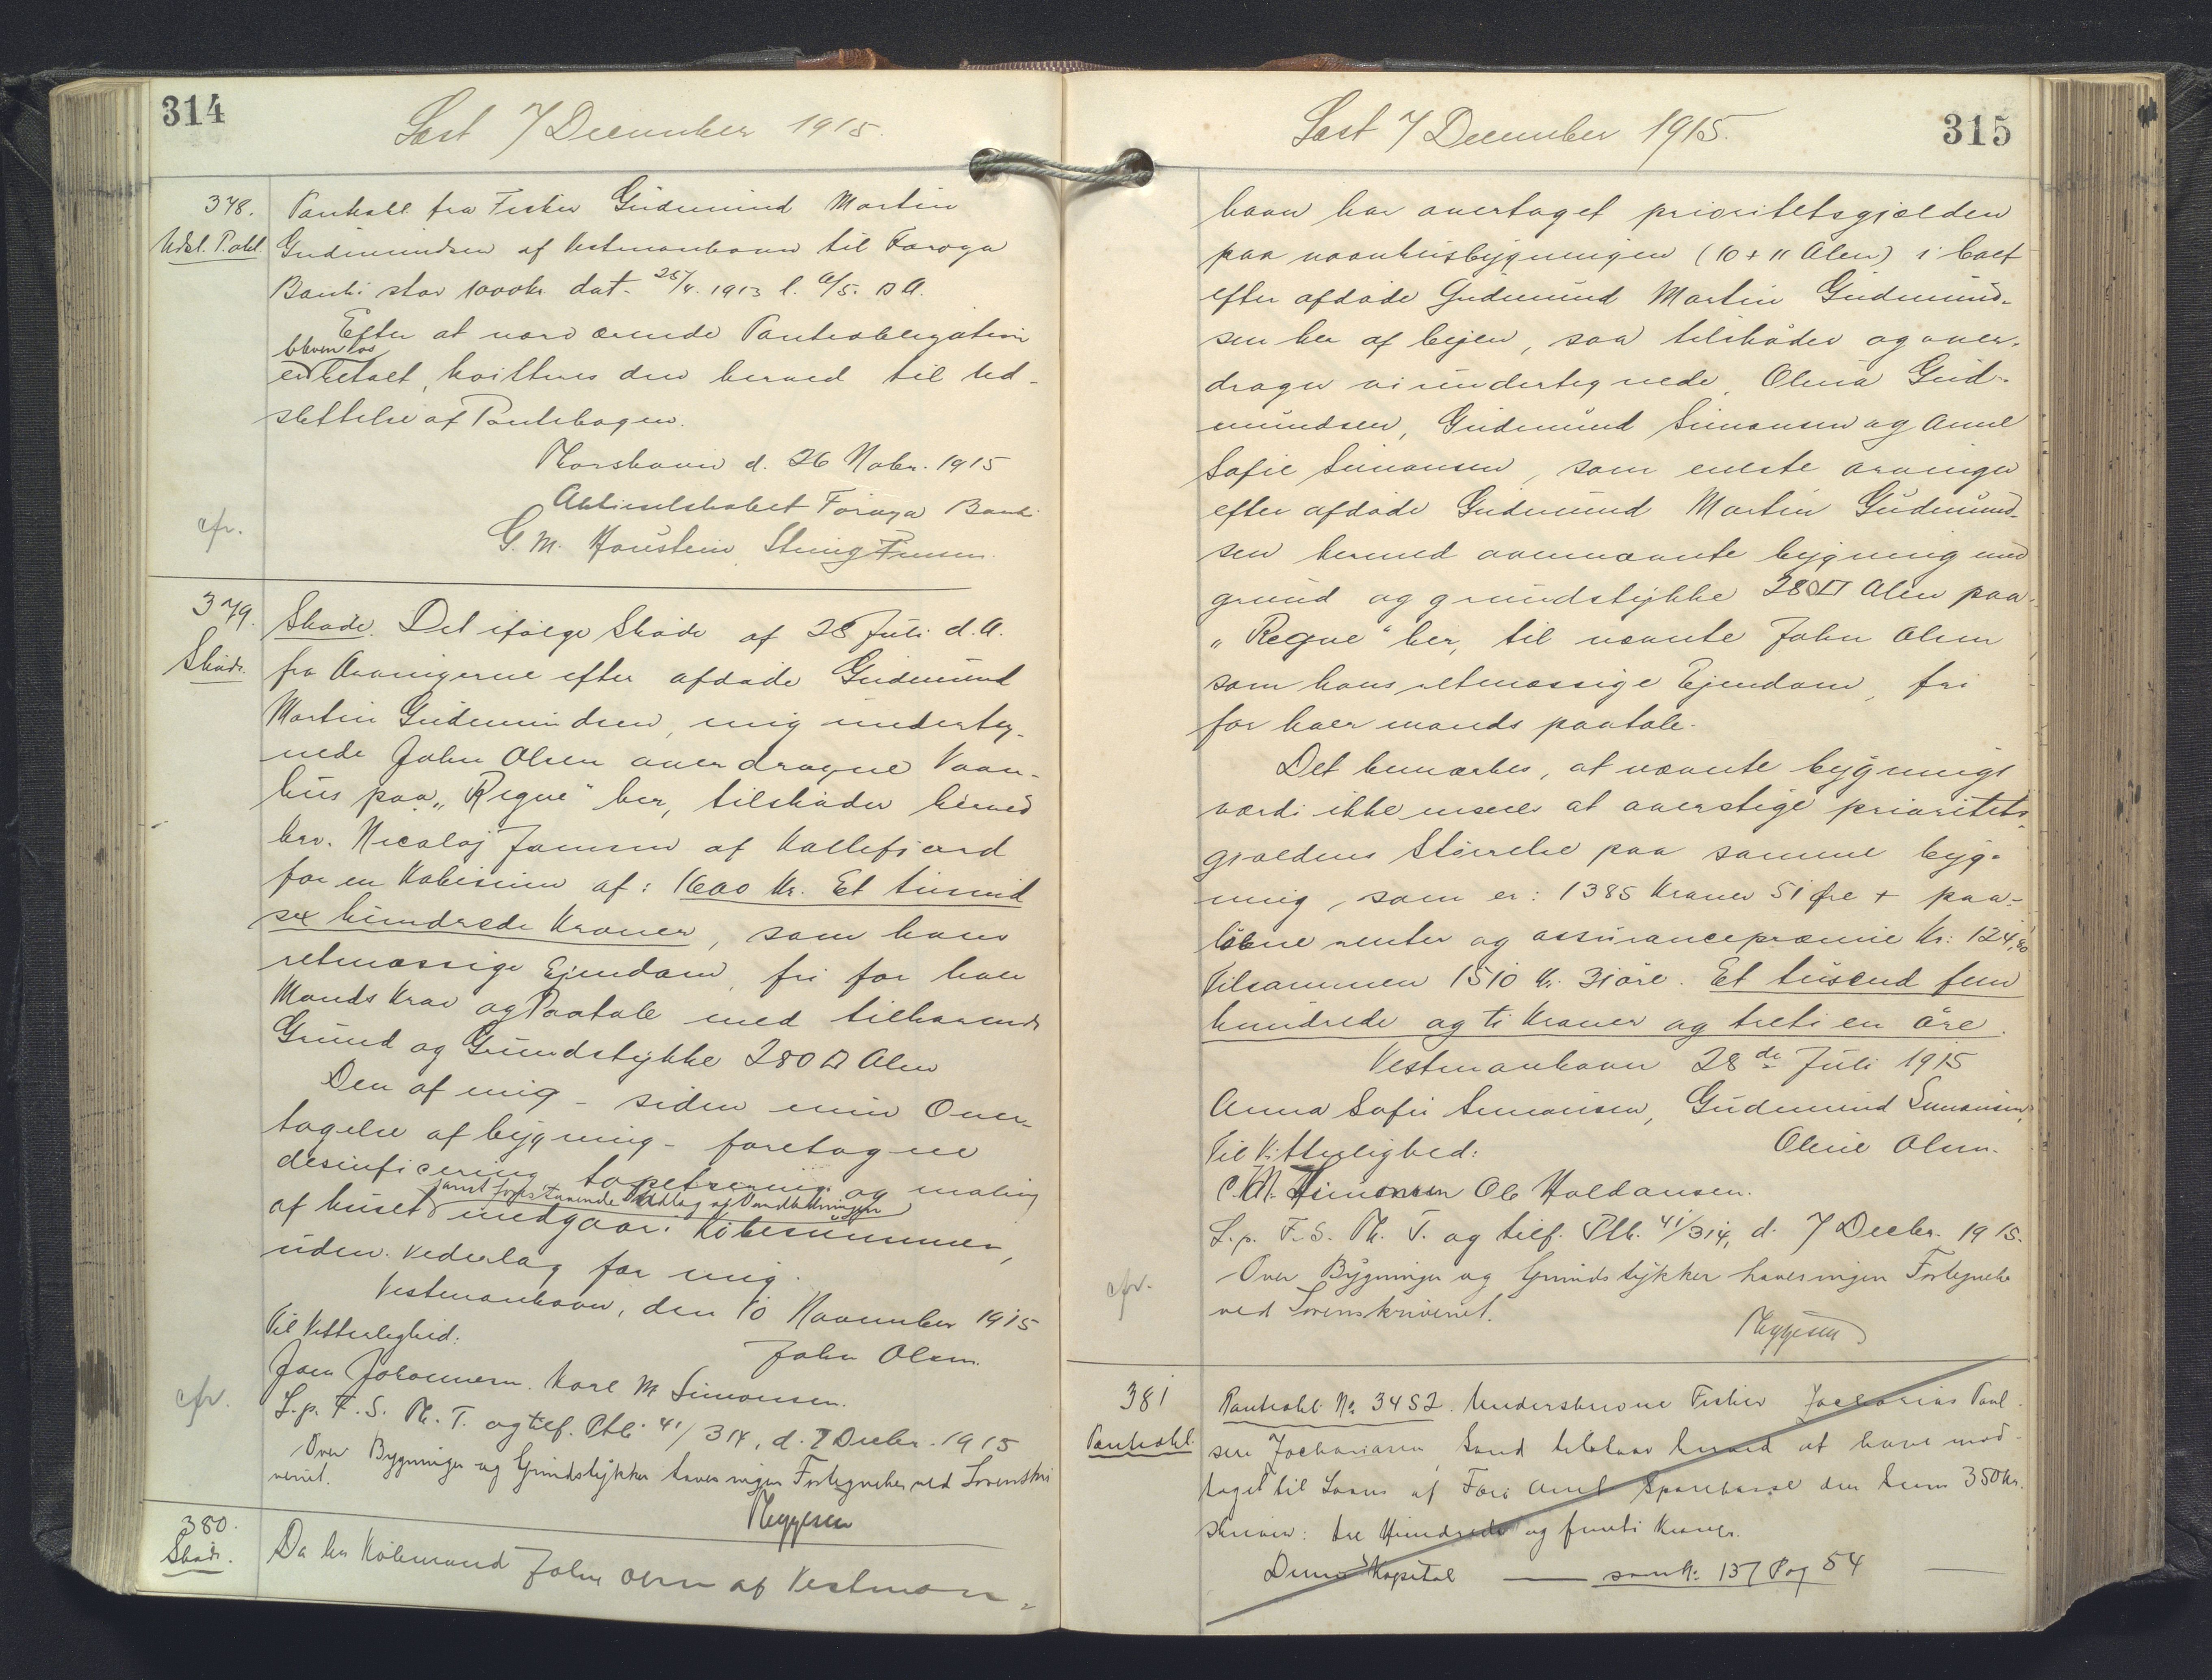 314
Læst 7 December 1915.
378.
Udsl. P. obl.
Pantobl. fra Fisker Gudmund Martin
Gudmundsen af Vestmanhavn til Færøya
Banki stor 1000 kr dat. 25/4. 1913 l. 6/5. s A.
Efter at nærværende Pantobligation
bleven los
er betalt, kvitteres den herved til Ud-
slettelse af Pantebogen.
Thorshavn d. 26 Nobr. 1915
Aktieselskabet Føroya Banki
G. M. Haustein
cfr.
379.
Skøde.
Skøde. Det ifølge Skøde af 28 Juli d. A.
fra Arvingerne efter afdøde Gudmund
Martin Gudmundsen, mig underteg-
nede John Olsen overdragne Vaan-
hus paa „Regne" her, tilskøder herved
hrv. Nicolaj Jensen af Kollefjord
for en Købesum af: 1600 Kr. Et tusind
sex hundrede Kroner, som hans
retmæssige Ejendom, fri for hver
Mands Krav og Paatale med tilhørende
Grund og Grundstykke 280 □ Alen
Den af mig - siden min Over-
tagelse af bygning - foretagne
desinficering tapetsering og maling
samt forestaaende Udlæg af Vandledningen
af huset medgaar i Købesummen,
uden Vederlag for mig.
Vestmanhavn, den 10 November 1915
Til Vitterlighed:
John Olsen.
Joen Johannesn. Karl M Simonsen.
L. p. F. S. Th. T. og tilf. Ptb. 41/314, d. 7 Decbr. 1915
Over Bygninger og Grundstykker haves ingen Fortegnelse ved Sorenskri
veriet.
cfr.
380.
Skøde.
Da hr Købmand John Olsen af Vestman-
315
Læst 7 December 1915.
havn har overtaget prioritetsgjælden
paa vaanhusbygningen (10 + 11 Alen) i boet
efter afdøde Gudmund Martin Gudmund-
sen her af bejen, saa tilskøder og over-
drager vi undertegnede, Olina Gud-
mundsen, Gudmund Simonsen og Anne
Sofie Simonsen, som eneste arvinger
efter afdøde Gudmund Martin Gudmund-
sen hermed ovennævnte bygning med
grund og grundstykke 280 □ Alen paa
„Regne" her, til nævnte John Olsen
som hans retmæssige Ejendom, fri
for hver mands paatale.
Det bemærkes, at nævnte bygnings
værdi ikke menes at overstige prioritets-
gjældens Størrelse paa samme byg-
ning, som er: 1385 Kroner 51 Øre + paa-
løbne renter og assurancepræmie Kr: 124,80
Tilsammen 1510 Kr. 31 øre. Et tusend fem
hundrede og ti Kroner og treti en øre.
Vestmanhavn 28de Juli 1915
Anna Sofie Simonsen, Gudmund Simonsen,
Til Vitterlighed:
Oline Olsen.
C. M. Simonsen Ole Haldansen.
L. p. F. S. Th. T. og tilf. Ptb. 41/314, d. 7 Decbr. 1915.
Over Bygninger og Grundstykker haves ingen Fortegnelse
ved Sorenskriveriet.
cfr.
381
Pantobl.
Pantobl. No 3452. Underskrevne Fisker Jochariàs Poul-
sen Jochariasen, Sand tilstaar herved at have mod-
taget til Laans af Færø Amts Sparekasse den Sum 350 kr.
skriver: tre Hundrede og femti Kroner.
Denne Kapital — samk. 137 Pag 54 —